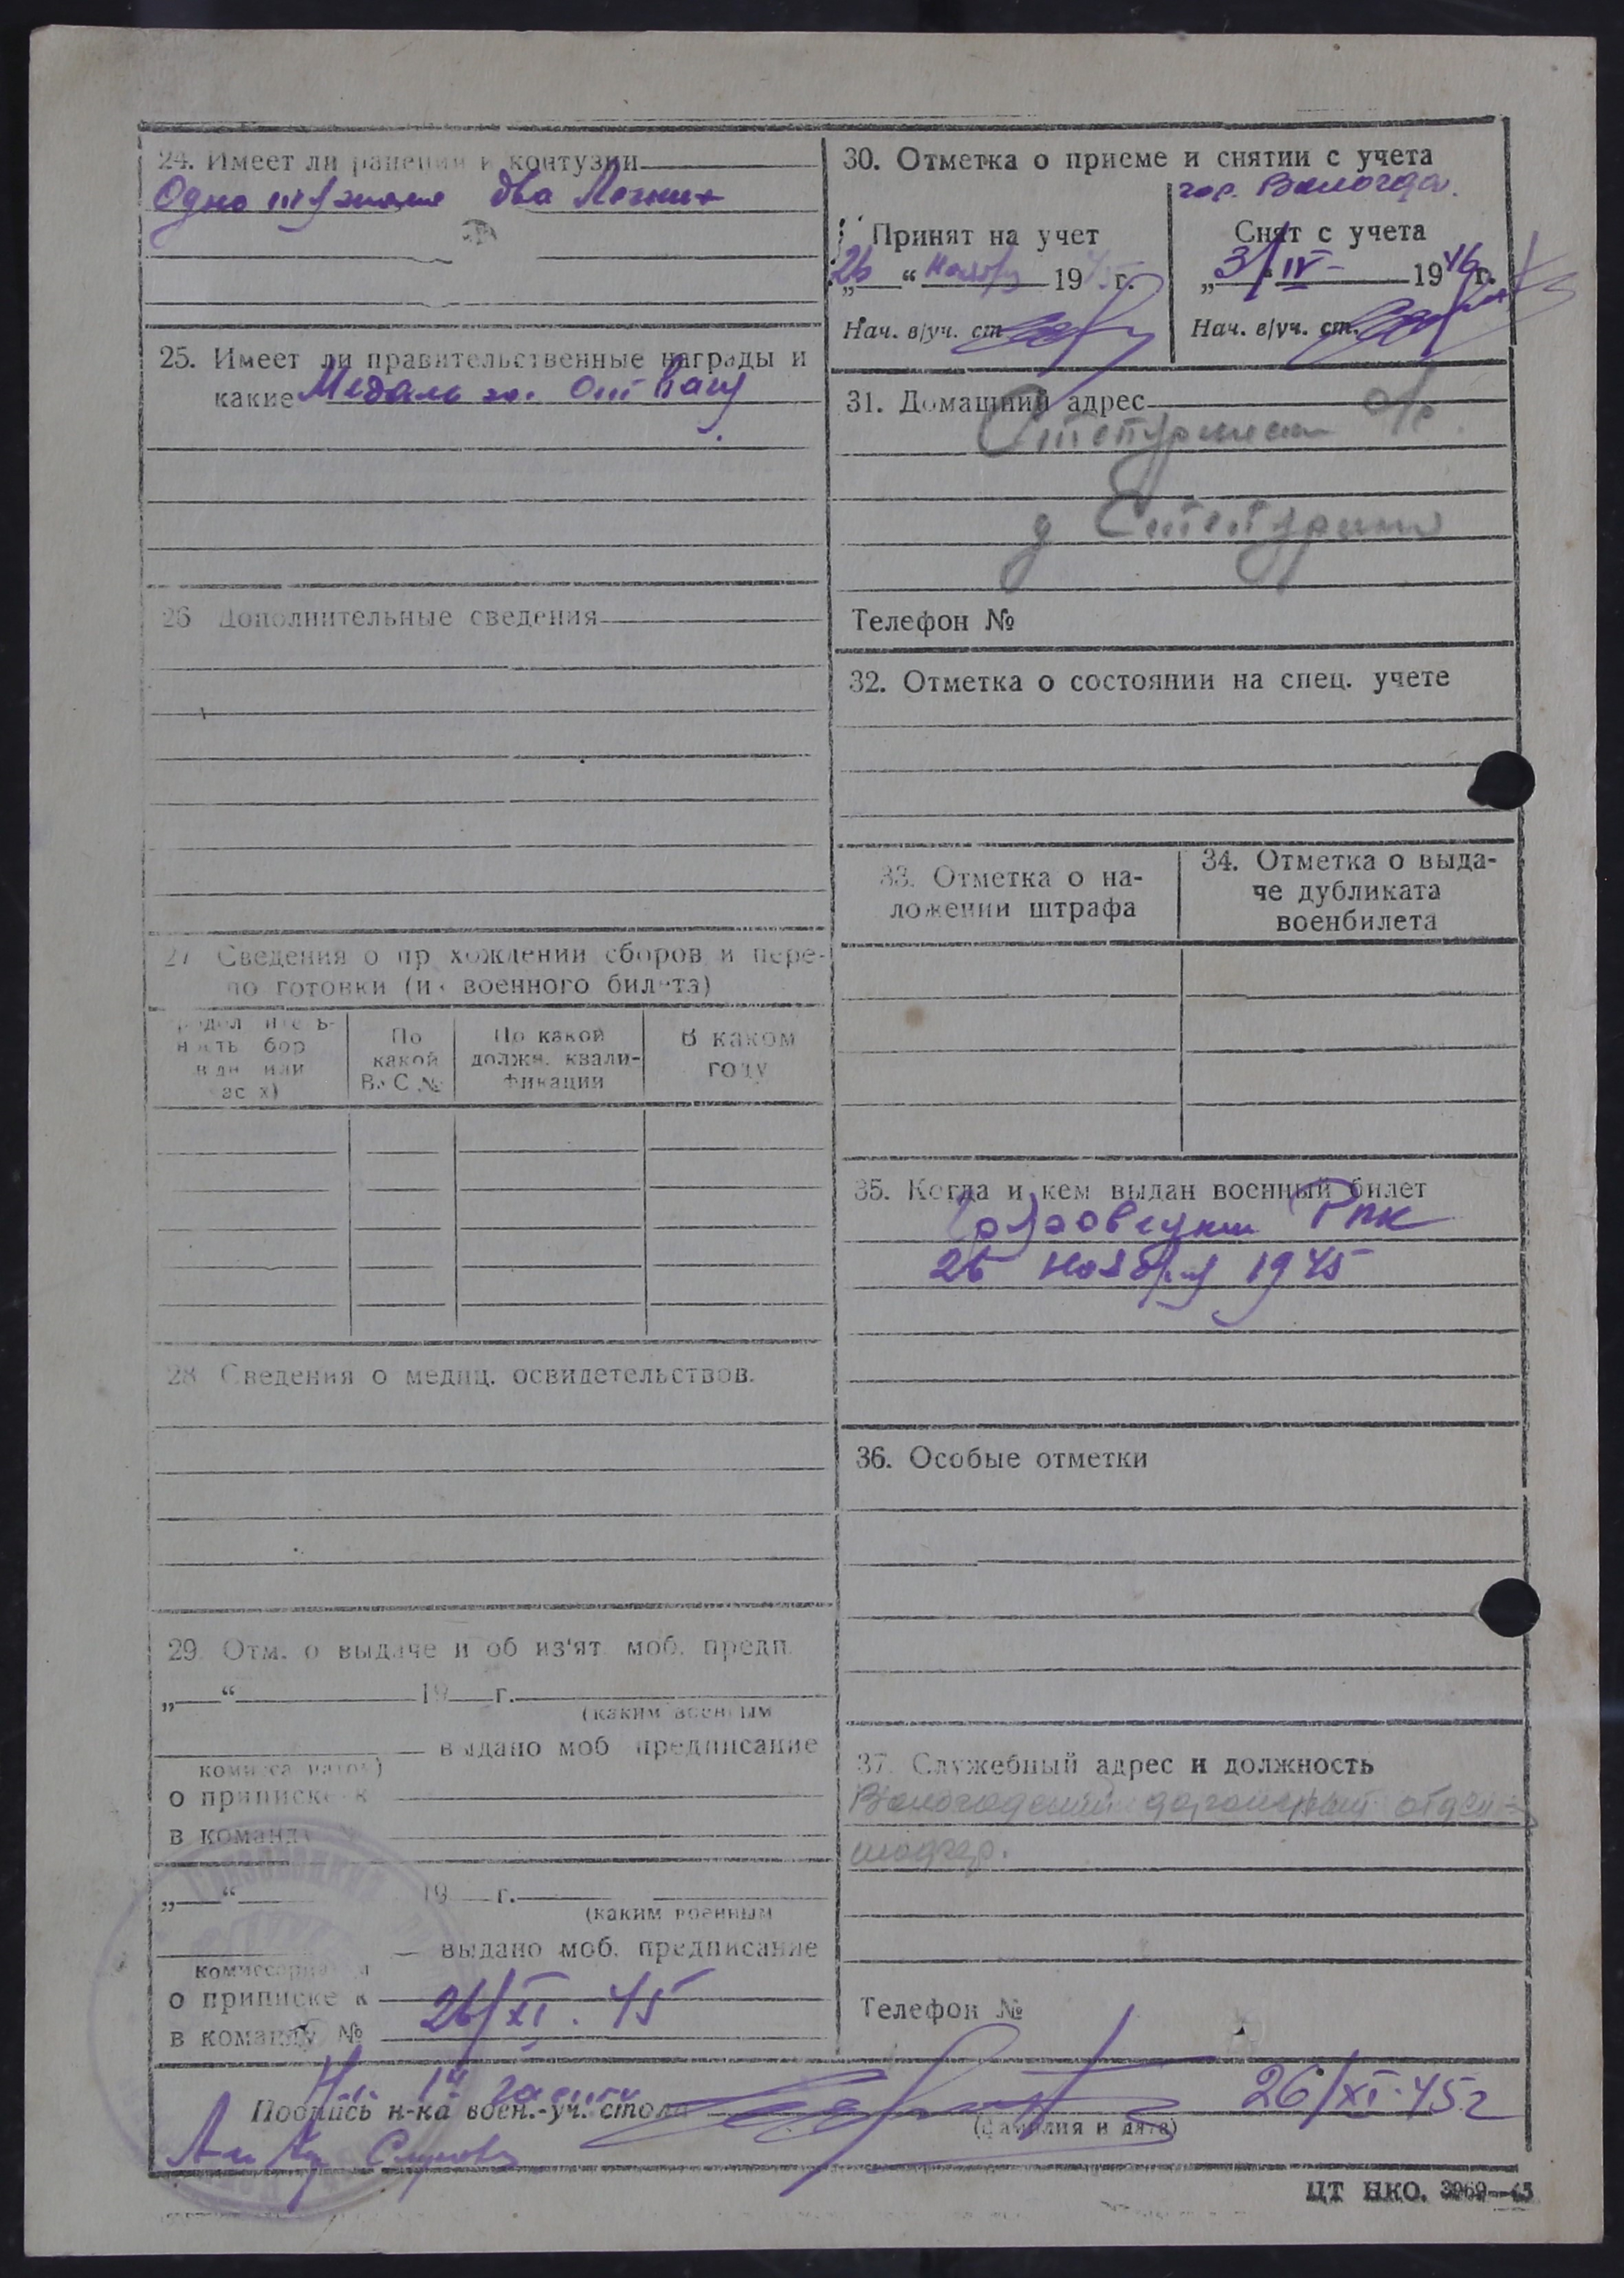 24. Имеет ли ранения и контузии
Одно два
25. Имеет ли правительственные награды и
какие Медаль за. Отвагу
26 Дополнительные сведения
27 Сведения о пр хождении сборов и пере-
по готовки (из военного билета)
По
какой
ВУС №
По какой
должн. квали-
фикации
В каком
году
28 Сведения о медиц. освидетельствов.
29. Отм. о выдаче и об из'ят. моб. предп.
„ “ 19 г.
(каким военным
выдано моб предписание
комиссариатом)
о приписке к
в команду №
„ “ 19 г.
(каким военным
выдано моб. предписание
о приписке к
26/XI. 45
в команду №
30. Отметка о приеме и снятии с учета
гор. Вологда.
Принят на учет
26 “ ноября 1945 г.
Нач. в/уч. ст.
Снят с учета
„ 3/IV- 1946 г.
Нач. в/уч. ст.
31. Домашний адрес
д
Телефон №
32. Отметка о состоянии на спец. учете
33. Отметка о на-
ложении штрафа
34. Отметка о выда-
че дубликата
военбилета
35. Когда и кем выдан военный билет
26 ноября 1945
36. Особые отметки
37. Служебный адрес и должность
Вологодский
Телефон №
Подпись н-ка воен.-уч. стола 26/XI.45г
(фамилия и дата)
ЦТ НКО. 3969—45